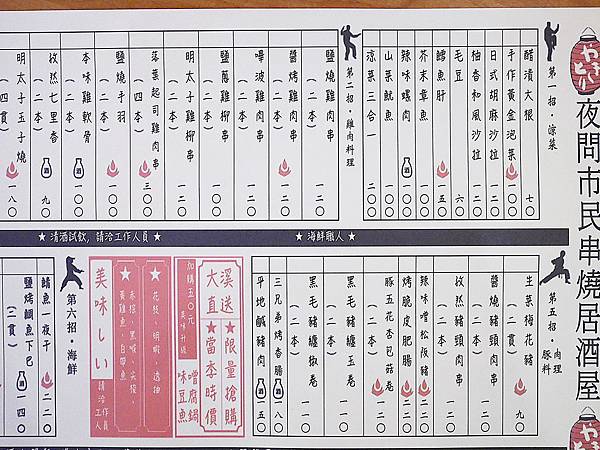 やきとり
夜問市民串燒居酒屋
やきとり
第一招·涼菜
醋漬大根 七〇
手作黃金泡菜 一〇〇
日式胡麻沙拉 一二〇
柚香和風沙拉 一二〇
毛豆 六〇
鱈魚肝 一五〇
芥末章魚 一〇〇
辣味螺肉 一〇〇
山菜魷魚 一〇〇
涼菜三合一 二〇〇
第二招·雞肉料理
鹽燒雞肉串(二本) 一二〇
醬烤雞肉串(二本) 一二〇
嗶波雞肉串(二本) 一二〇
鹽蔥雞柳串(二本) 一二〇
明太子雞柳串(二本) 一二〇
落葉起司雞肉串(四本) 三〇〇
鹽燒手羽(二本) 一〇〇
本味雞軟骨(二本) 一〇〇
孜然七里香(二本) 九〇
明太子玉子燒(四貫) 一八〇
★海鮮職人★
★清酒試飲,請洽工作人員★
第五招·肉理豚料
生菜梅花豬 九〇
醬燒豬頸肉串(二本) 一二〇
孜然豬頸肉串(二本) 一二〇
辣味噌松阪豬 一二〇
烤脆皮肥腸 一二〇
豚五花杏包菇卷(二本) 一二〇
黑毛豬纏玉卷 一一〇
黑毛豬纏椒卷 一一〇
三兄弟烤香腸 一八〇
平地鹹豬肉 一五〇
★限量搶購
★當季時價
大溪直送
加購五〇元
美味升級
味噌豆腐魚鍋
★
花枝、明蝦、透抽
★
赤鯮、黑喉、尖梭、
黃雞魚、白口魚
美味しい
請洽工作人員
第六招·海鮮
鯖魚一夜干 二二〇
鹽烤鯛魚下巴(二貫) 一四〇